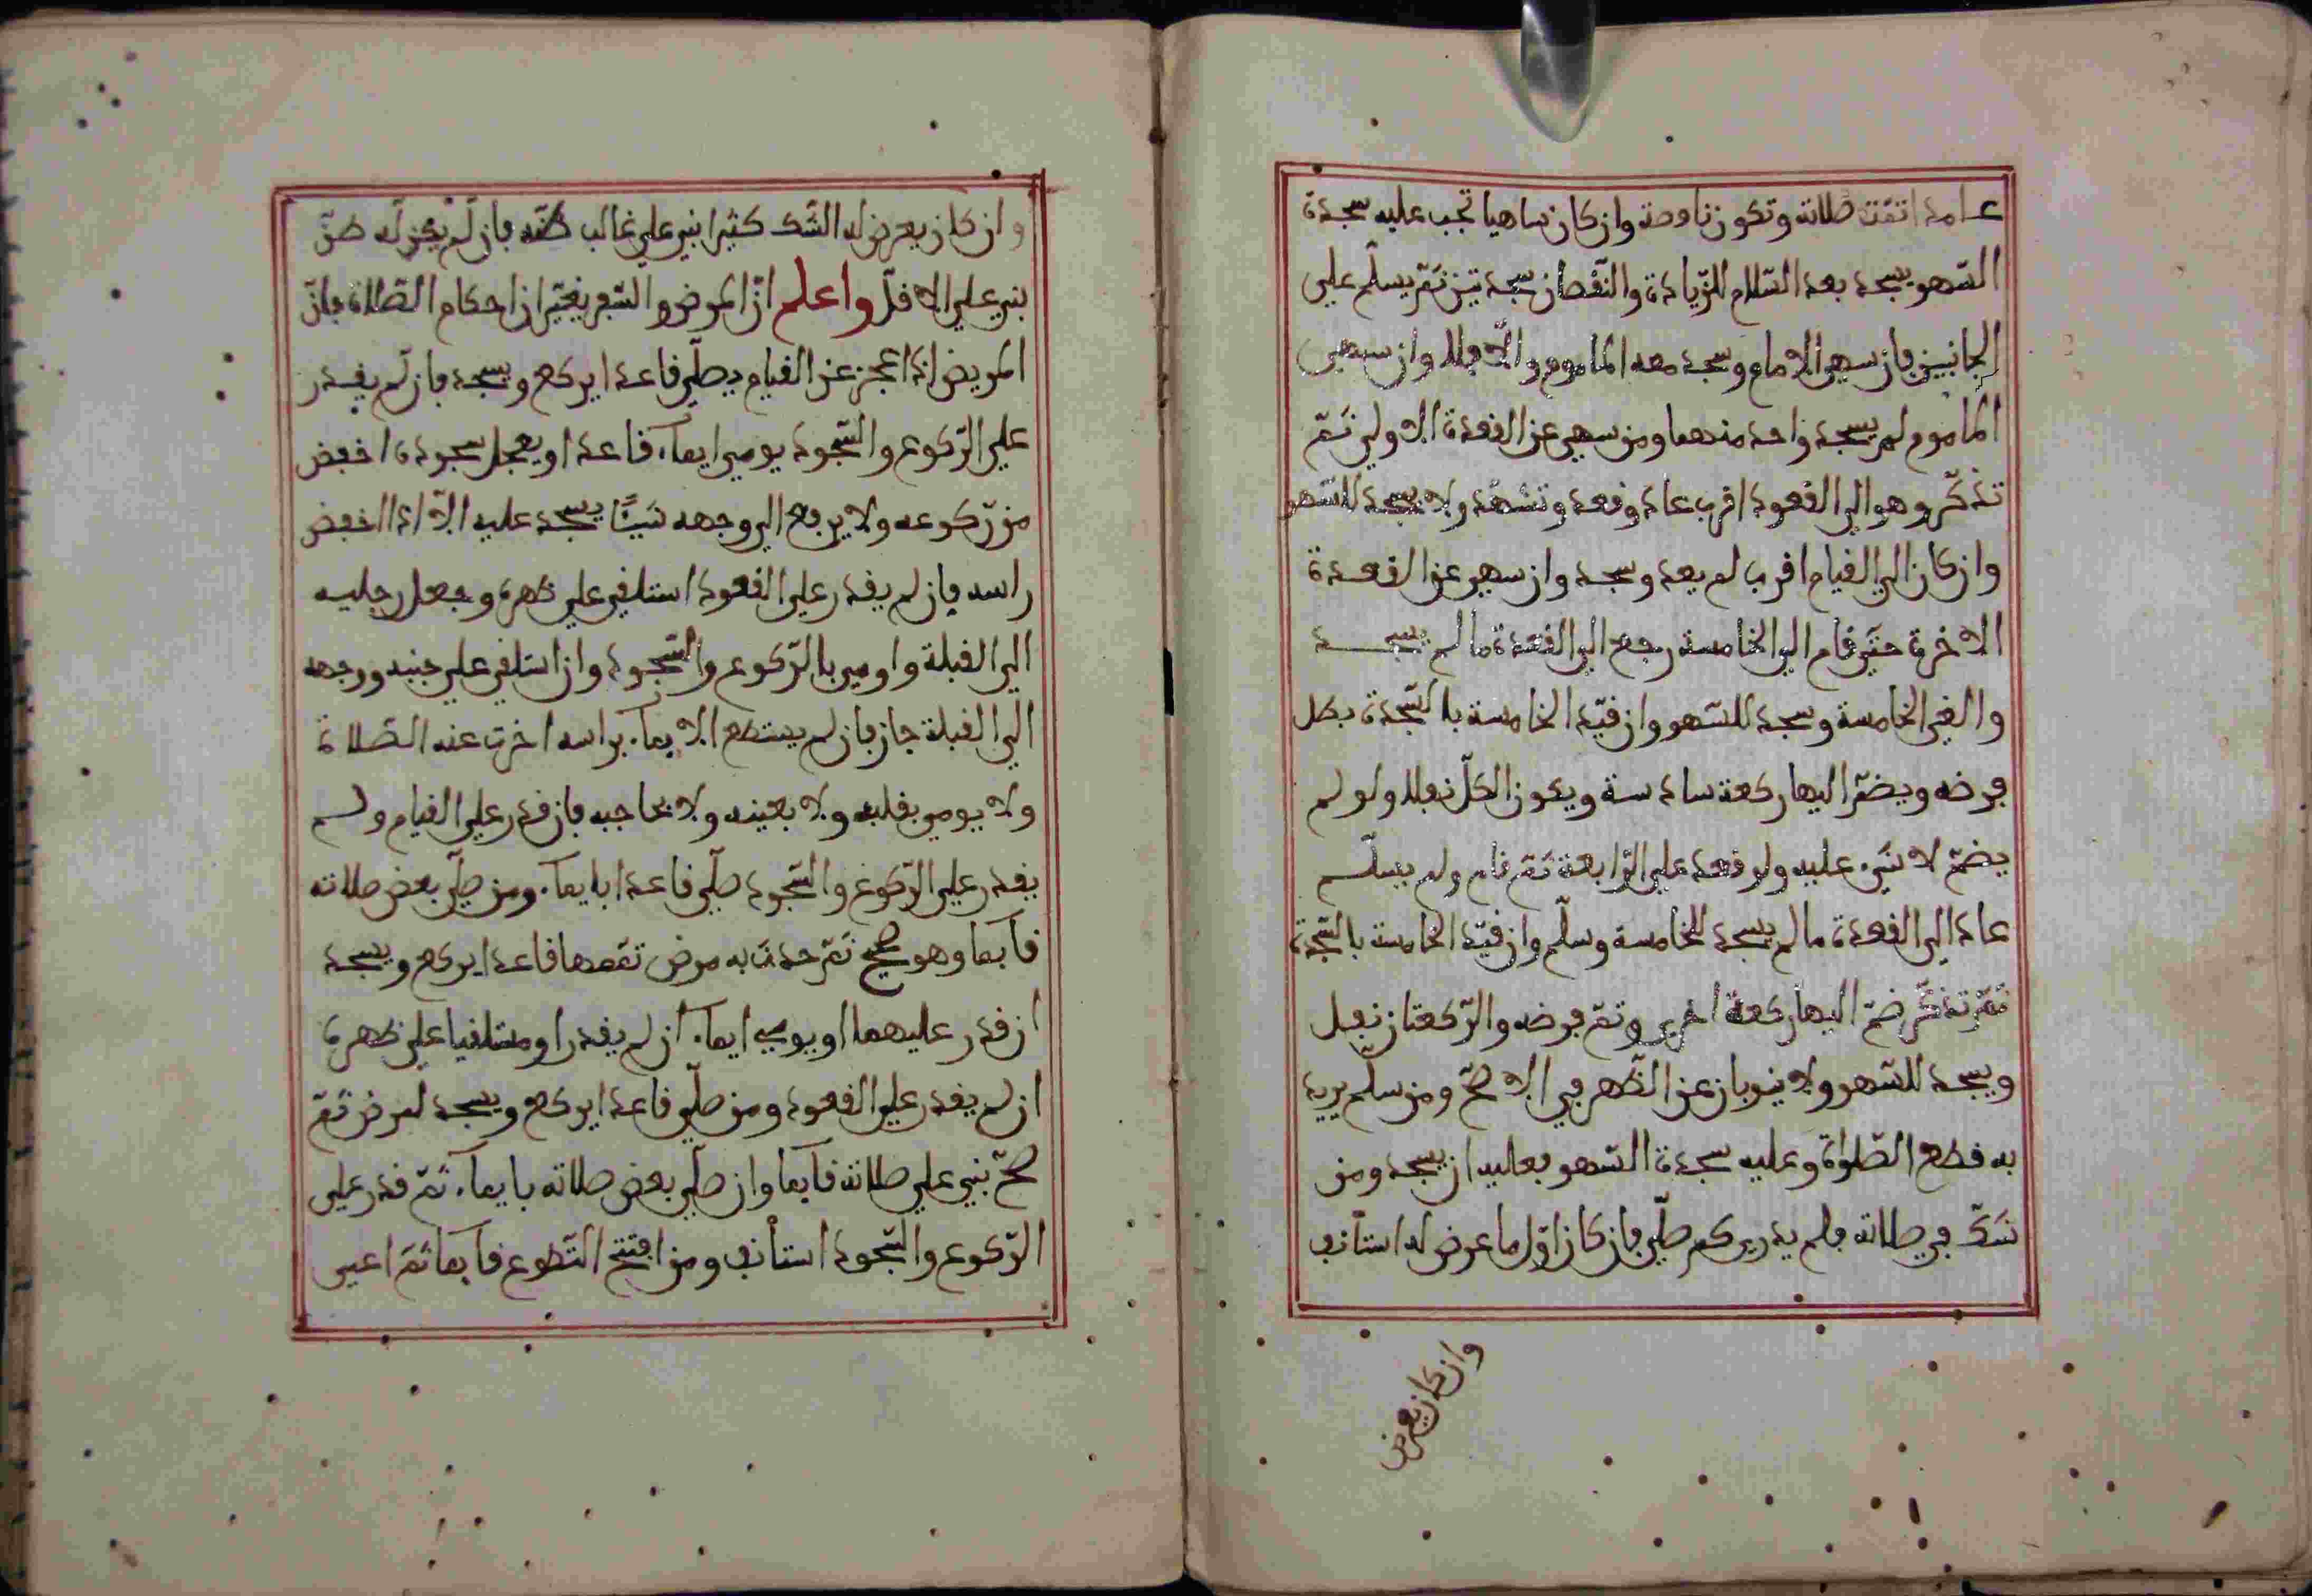 عامدا اتمت صلاته وتكون ناقصة وان كان ساهيا تجب عليه سجدة
السّهو يسجد بعد السّلام للزّيادة والنّقصان سجدتين ثمّ يسلّم على
الجانبين فان سهى الامام وسجد معه الماموم والّا فلا وان سهى
الماموم لم يسجد واحد منهما ومن سهى عن القعدة الاولى ثمّ
تذكّر وهو الى القعود اقرب عاد وقعد وتشهّد ولا يسجد للسّهو
وان كان الى القيام اقرب لم يعد وسجد وان سهى عن القعدة
الاخرة حتّى قام الى الخامسة رجع الى القعدة ما لم يسجد
والغى الخامسة وسجد للسّهو وان قيّد الخامسة بالسّجدة بطل
فرضه ويضمّ اليها ركعة سادسة ويكون الكلّ نفلا ولو لم
يضمّ لا شيء عليه ولو قعد على الرّابعة ثمّ قام ولم يسلّم
عاد الى القعدة ما لم يسجد للخامسة وسلّم وان قيّد الخامسة بالسّجدة
ثمّ تذكّر ضمّ اليها ركعة اخرى وتمّ فرضه والرّكعتان نفل
ويسجد للسّهو ولا ينوبان عن الظّهر في الاصحّ ومن سلّم يريد
به قطع الصّلواة وعليه سجدة السّهو فعليه ان يسجد ومن
شكّ في صلاته فلم يدرى كم صلّى فان كان اوّل ما عرض له استأنف
وان كان يعرض
وان كان يعرض له الشّك كثيرا بنى على غالب ظنّه فان لّم يكن لّه ظنّ
بنى على الاقلّ واعلم انّ المرض والسّفر يغيّران احكام الصّلاة فانّ
المريض اذا عجز عن القيام يصلّى قاعدا يركع ويسجد فان لّم يقدر
على الرّكوع والسّجود يومى ايماء قاعدا ويجعل سجوده اخفض
من رّكوعه ولا يرفع الى وجهه شيئا يسجد عليه الّا اذا اخفض
راسه فان لم يقدر على القعود استلقى على ظهره وجعل رجليه
الى القبلة واومى بالرّكوع والسّجود وان استلقى على جنبه ووجهه
الى القبلة جاز فان لم يستطع الايماء براسه اخرت عنه الصّلاة
ولا يومى بقلبه ولا بعينه ولا بحاجبه فان قدر على القيام ولم
يقدر على الرّكوع والسّجود صلّى قاعدا بايماء ومن صلّى بعض صلاته
قآيما وهو صحيح ثمّ حدث به مرض تمّمها قاعدا يركع ويسجد
ان قدر عليهما او يومي ايماء ان لم يقدر او مستلقيا على ظهره
ان لم يقدر على القعود ومن صلّى قاعدا يركع ويسجد لمرض ثمّ
صحّ بنى على صلاته قآيما وان صلّى بعض صلاته بايماء ثمّ قدر على
الرّكوع والسّجود استأنف ومن افتتح التّطوع قآيما ثمّ اعيى